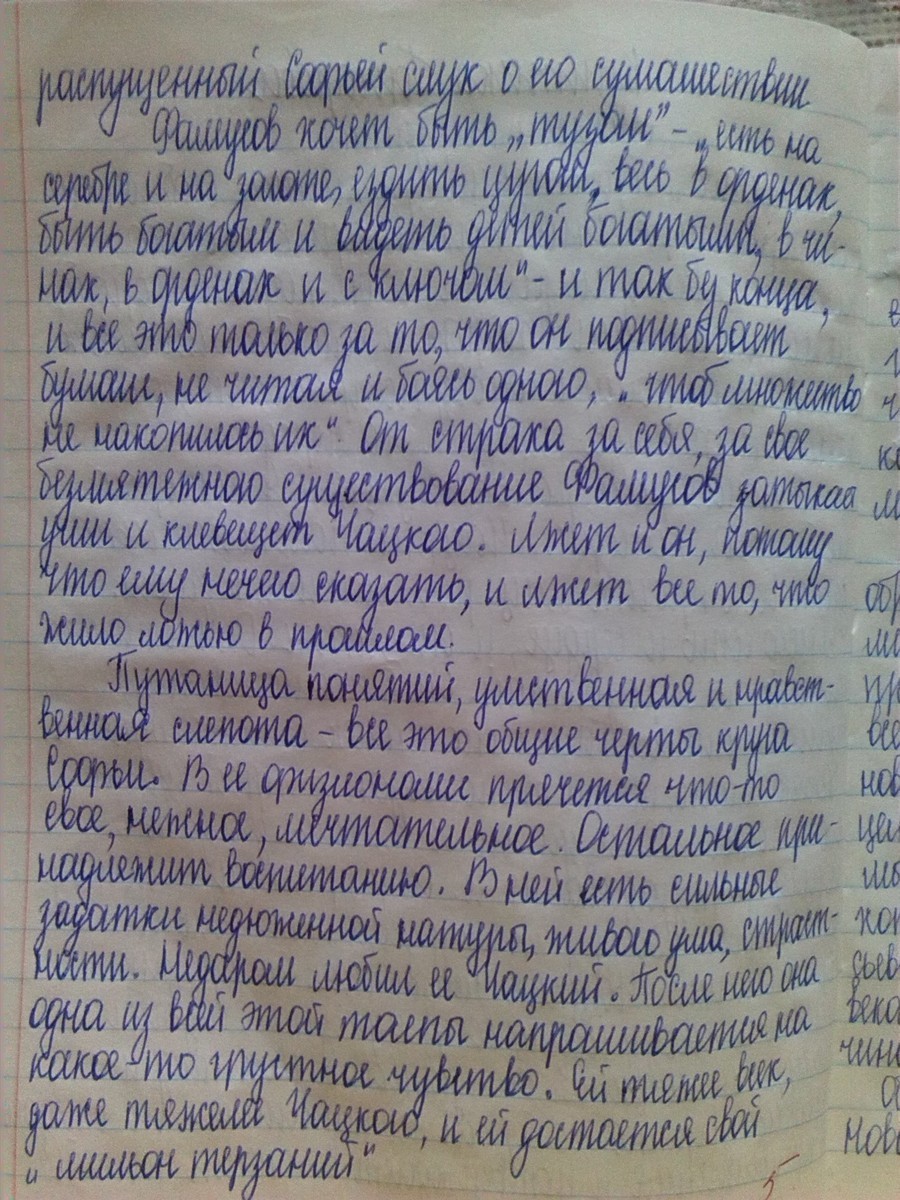 распущенный Софьей слух о его сумашествии
Фамусов хочет быть „тузом" – „есть на
серебре и на золоте, ездить цугом, весь в орденах,
быть богатым и видеть детей богатыми, в чи-
нах, в орденах и с ключом" – и так без конца,
и все это только за то, что он подписывает
бумаги, не читая и боясь одного, „чтоб множество
не накопилось их". От страха за себя, за свое
безмятежною существование Фамусов затыкая
уши и клевещет Чацкого. Лжет и он, потому
что ему нечего сказать, и лжет все то, что
жило ложью в прошлом.
Путаница понятий, умственная и нравст-
венная слепота – все это общие черты круга
Софьи. В ее физиономи прячется что-то
свое, нежное, мечтательное. Остальное при-
надлежит воспитанию. В ней есть сильные
задатки недюженной натуры, живого ума, страст-
ности. Недаром любил ее Чацкий. После него она
одна из всей этой толпы напрашивается на
какое-то грустное чувство. Ей тяжее всех,
даже тяжелее Чацкого, и ей достается свой
„мильон терзаний"
5